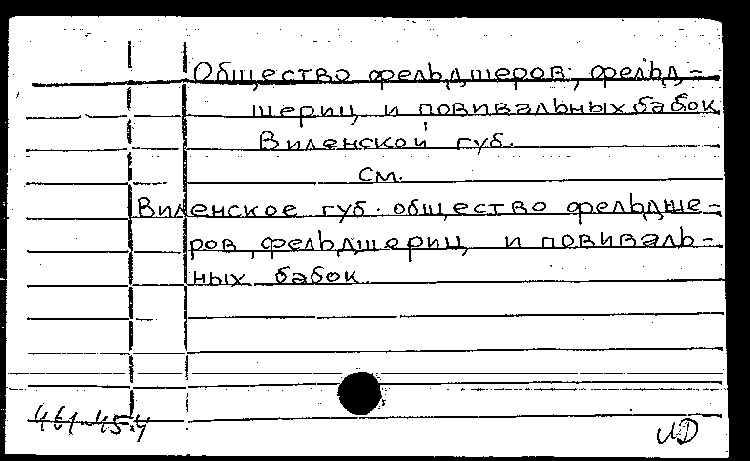 Общество фельдшеров, фельд-
шериц и повивальных бабок
Виленской губ.
См.
Виленское губ. общество фельдше-
ров, фельдшериц и поvиваль-
ных бабок
461-45.4
ИД